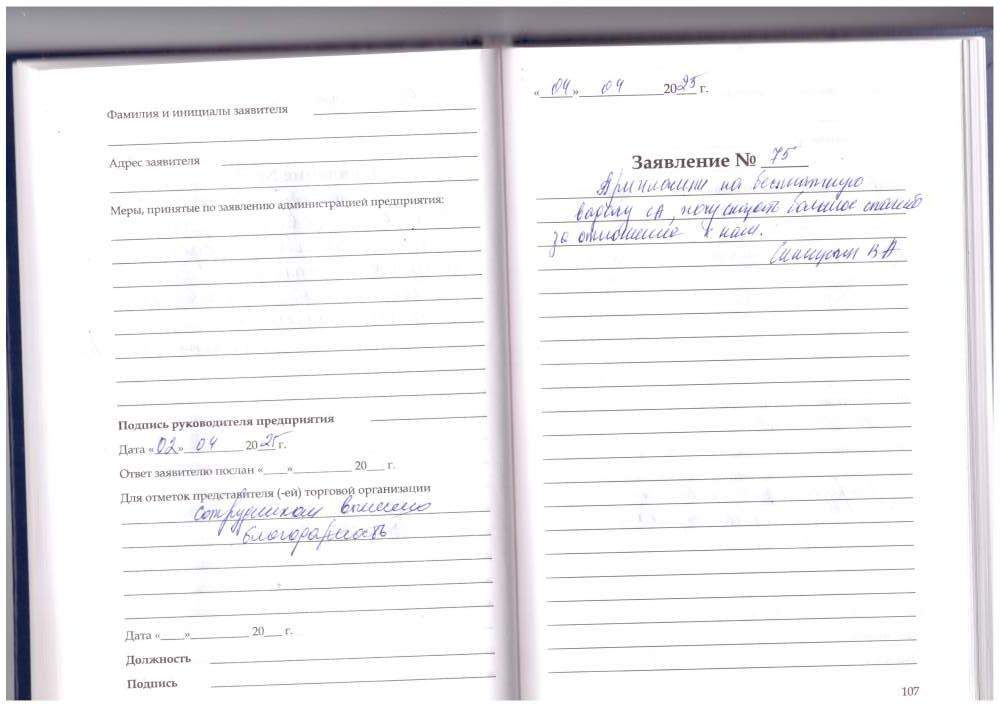 Фамилия и инициалы заявителя
Адрес заявителя
Меры, принятые по заявлению администрацией предприятия:
Подпись руководителя предприятия
Дата «02» 04 2025 г.
Ответ заявителю послан «    »          20    г.
Для отметок представителя (-ей) торговой организации
сотрудникам вынесена
благодарность
Дата «    »          20    г.
Должность
Подпись
«04» 04 2025 г.
Заявление № 75
на бесплатную
большое спасибо
за отношение к нам.
В А
107